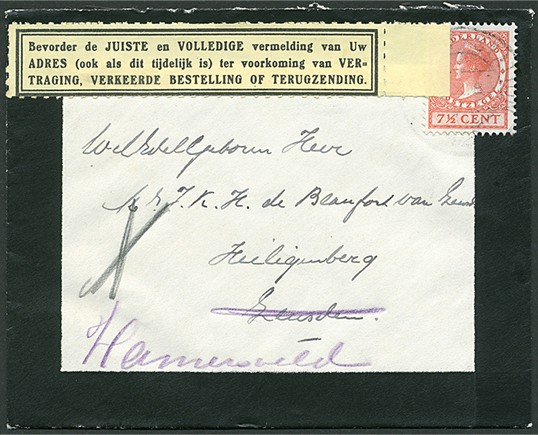 Bevorder de JUISTE en VOLLEDIGE vermelding van Uw
ADRES (ook als dit tijdelijk is) ter voorkoming van VER-
TRAGING, VERKEERDE BESTELLING OF TERUGZENDING.
NEDERLAND
POSTZEGEL
7½ CENT
WelEdelGeboren Heer
Mr. J. K. H. de Beaufort van
Heiligenberg
Leusden.
Hamersveld